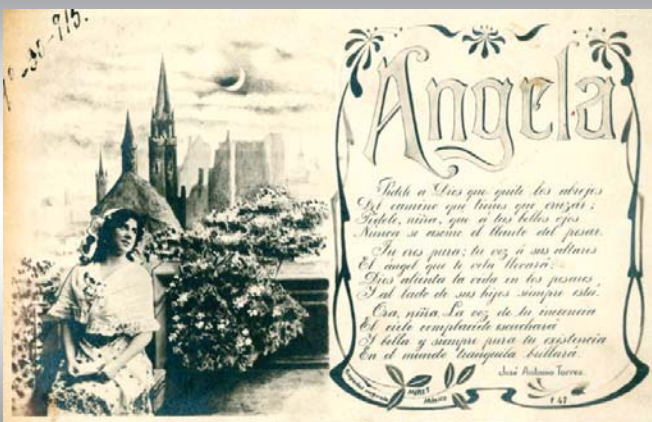 1º-30-913.
Angela
Pidele a Dios que quite los abrojos
Del camino que tienes que cruzar;
Pídele, niña, que á tus bellos ojos
Nunca se asome el llanto del pesar.
Tu eres pura; tu voz á sus altares
El ángel que te vela llevará;
Dios alienta la vida en los pesares,
Y al lado de sus hijos siempre está.
Ora, niña. La voz de tu inocencia
El cielo complacido escuchará
Y bella y siempre pura tu existencia
En el mundo tranquila brillará.
José Antonio Torres.
Propiedad asegurada
México
f 47